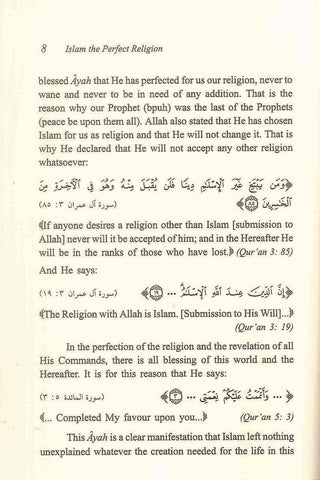 8 Islam the Perfect Religion
blessed Âyah that He has perfected for us our religion, never to
wane and never to be in need of any addition. That is the
reason why our Prophet (bpuh) was the last of the Prophets
(peace be upon them all). Allah also stated that He has chosen
Islam for us as religion and that He will not change it. That is
why He declared that He will not accept any other religion
whatsoever:
﴿وَمَن يَبْتَغِ غَيْرَ الْإِسْلَامِ دِينًا فَلَن يُقْبَلَ مِنْهُ وَهُوَ فِي الْآخِرَةِ مِنَ
الْخَاسِرِينَ ﴿٨٥﴾﴾ (سورة آل عمران ٣: ٨٥)
﴾If anyone desires a religion other than Islam [submission to
Allah] never will it be accepted of him; and in the Hereafter He
will be in the ranks of those who have lost.﴿ (Qur'an 3: 85)
And He says:
﴿إِنَّ الدِّينَ عِندَ اللَّهِ الْإِسْلَامُ ... ﴿١٩﴾﴾ (سورة آل عمران ٣: ١٩)
﴾The Religion with Allah is Islam. [Submission to His Will]...﴿
(Qur'an 3: 19)
In the perfection of the religion and the revelation of all
His Commands, there is all blessing of this world and the
Hereafter. It is for this reason that He says:
﴿ ... وَأَتْمَمْتُ عَلَيْكُمْ نِعْمَتِي ... ﴿٣﴾﴾ (سورة المائدة ٥: ٣)
﴾... Completed My favour upon you...﴿ (Qur'an 5: 3)
This Âyah is a clear manifestation that Islam left nothing
unexplained whatever the creation needed for the life in this